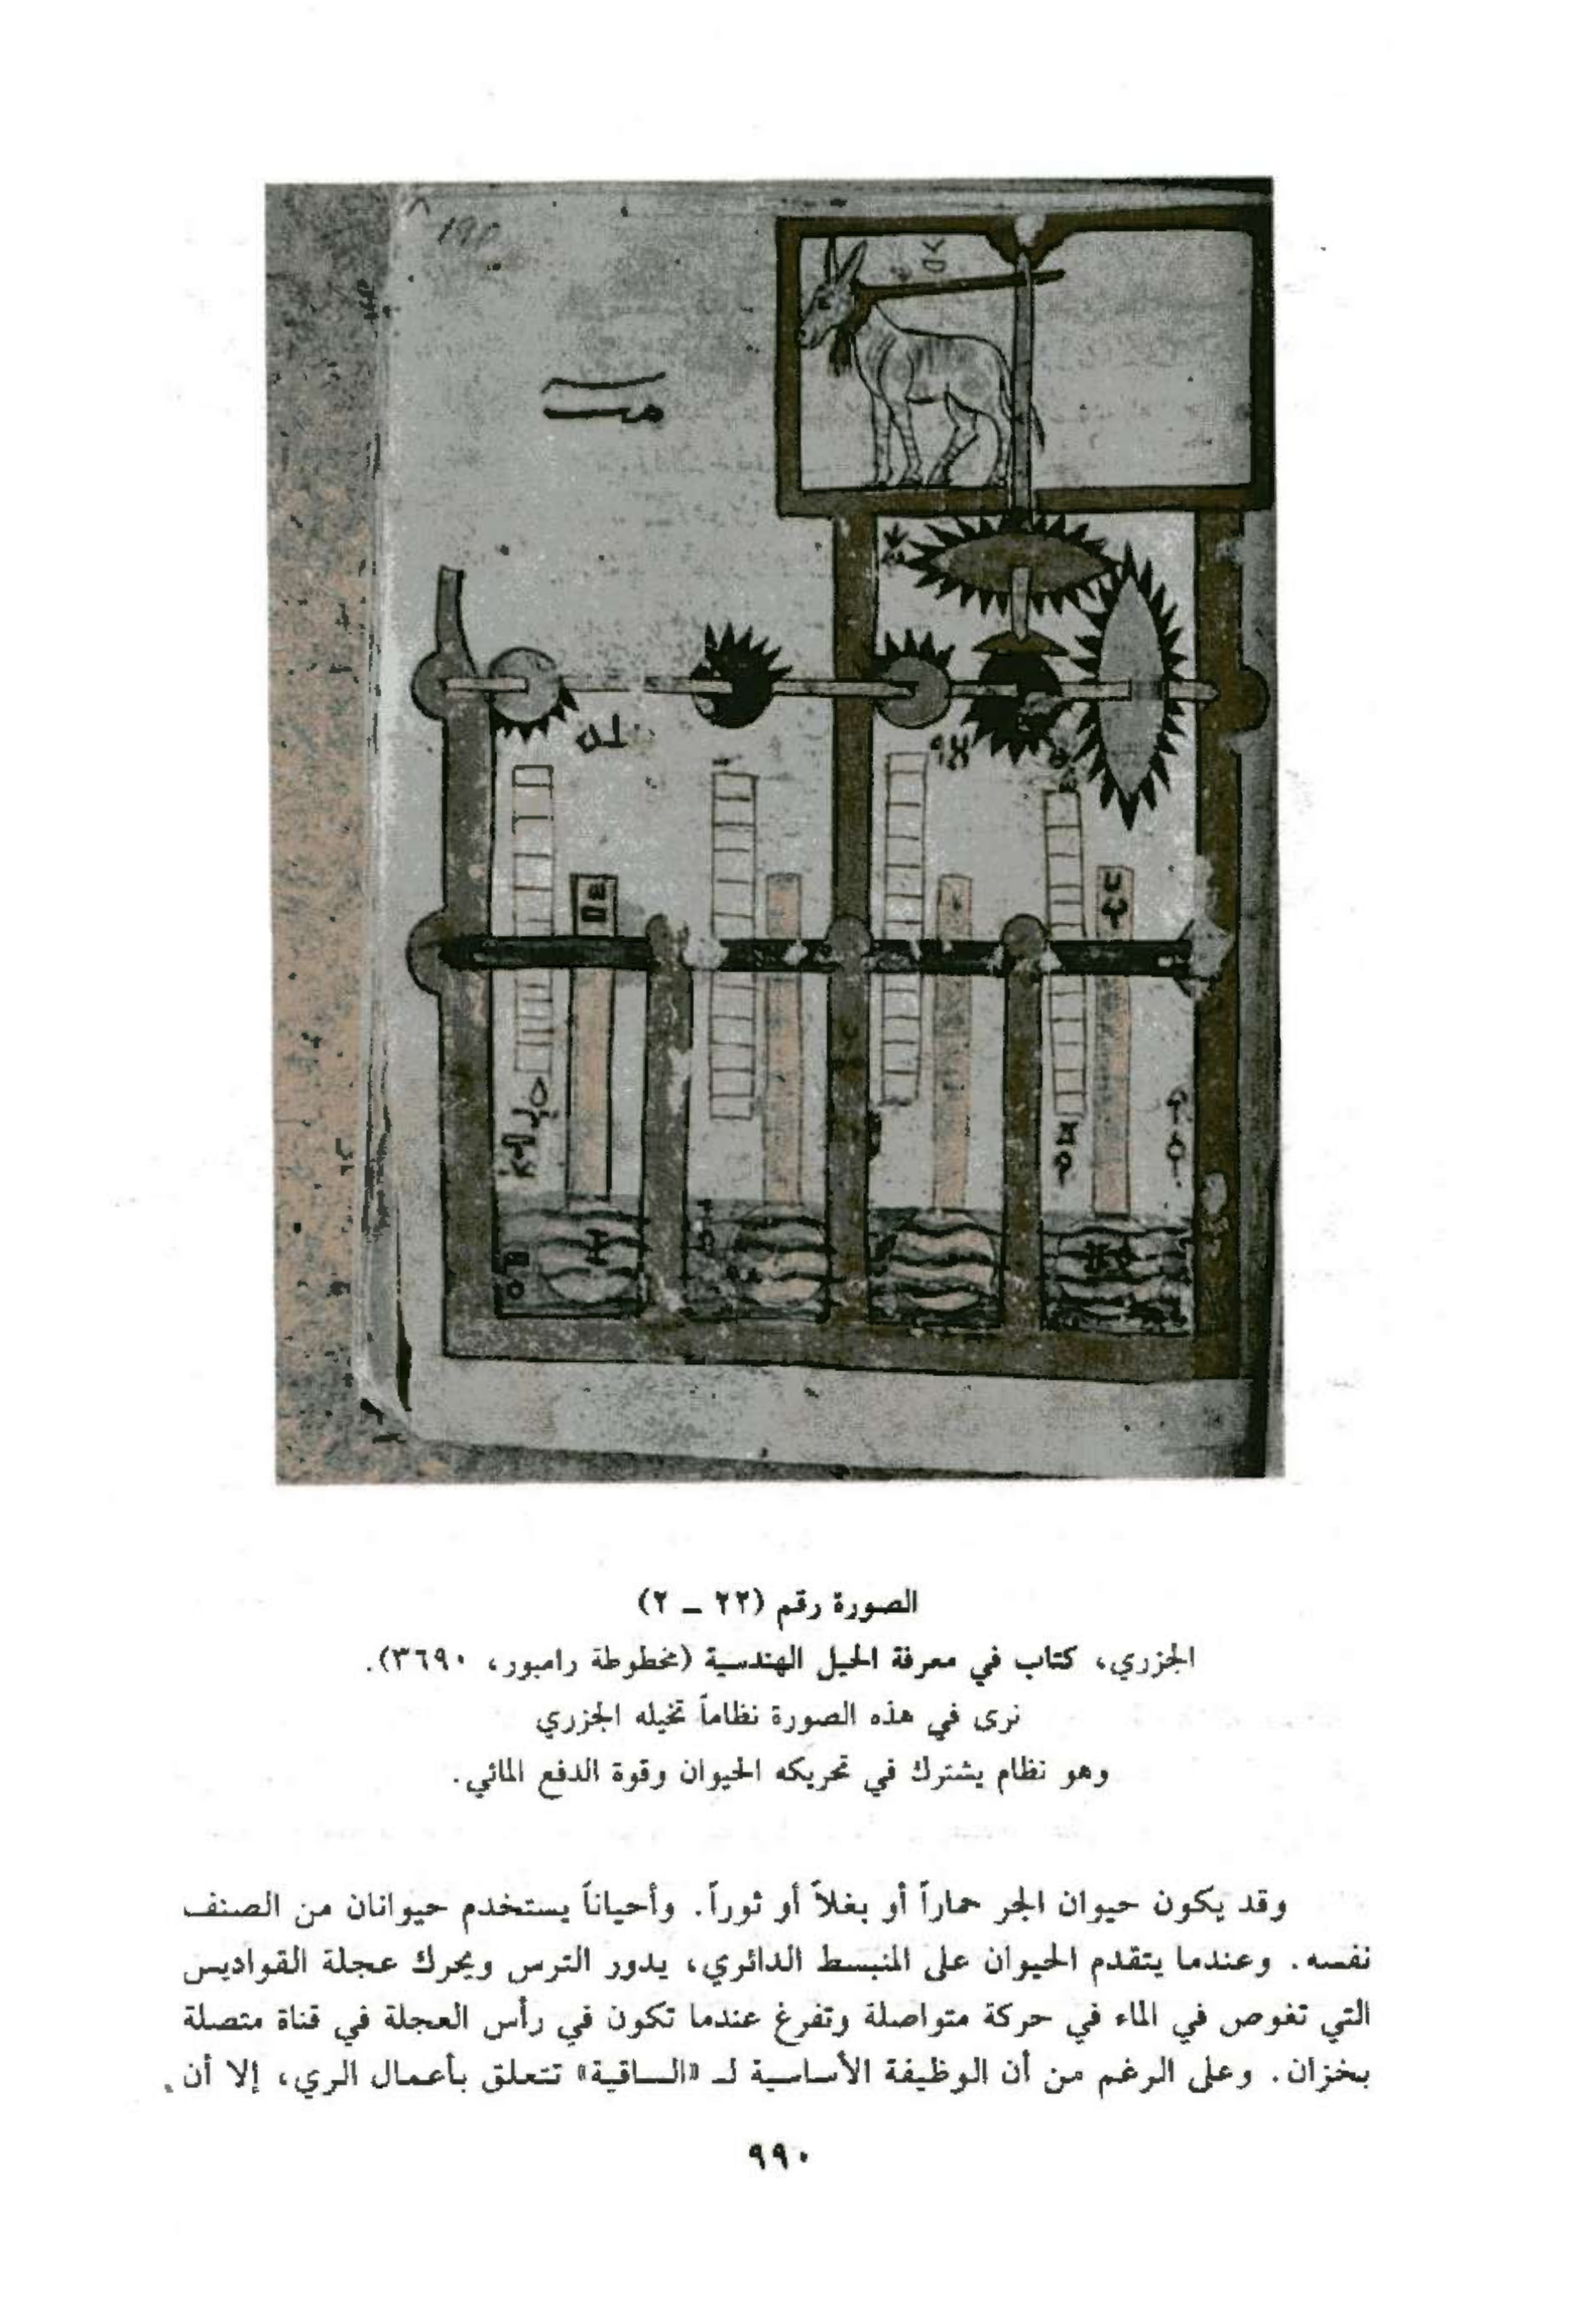 الصورة رقم (٢٢ - ٢)
الجزري، كتاب في معرفة الحيل الهندسية (مخطوطة رامبور، ٣٦٩٠).
نرى في هذه الصورة نظاماً تخيله الجزري
وهو نظام يشترك في تحريكه الحيوان وقوة الدفع المائي.
وقد يكون حيوان الجر حماراً أو بغلاً أو ثوراً. وأحياناً يستخدم حيوانان من الصنف
نفسه. وعندما يتقدم الحيوان على المنبسط الدائري، يدور الترس ويحرك عجلة القواديس
التي تغوص في الماء في حركة متواصلة وتفرغ عندما تكون في رأس العجلة في قناة متصلة
بخزان. وعلى الرغم من أن الوظيفة الأساسية لـ «الساقية» تتعلق بأعمال الري، إلا أن
٩٩٠